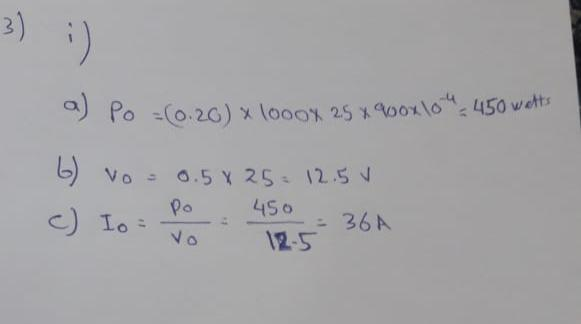 3) i)
a) Po = (0.20) x 1000 x 25 x 900 x 10⁻⁴ = 450 watts
b) Vo = 0.5 x 25 = 12.5 V
c) Io = Po/Vo = 450/12.5 = 36A